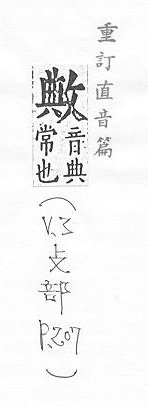 重訂直音篇
敟音典
常也
(V.3攴部P.207)